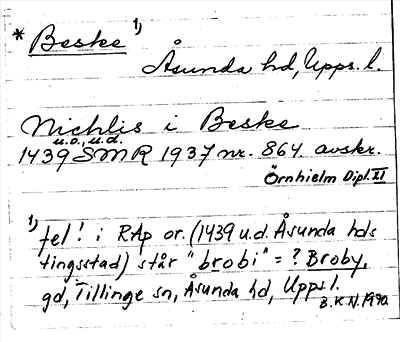 * Beske 1)
Åsunda hd, Upps. l.
Nichlis i Beske
u.o., u.d.
1439 SMR 1937 nr. 864. avskr.
Örnhielm Dipl. II
1) fel! i RAp or. (1439 u.d. Åsunda hds
tingsstad) står "brobi" = ? Broby,
gd, Tillinge sn, Åsunda hd, Upps. l.
B.K.N. 1990.